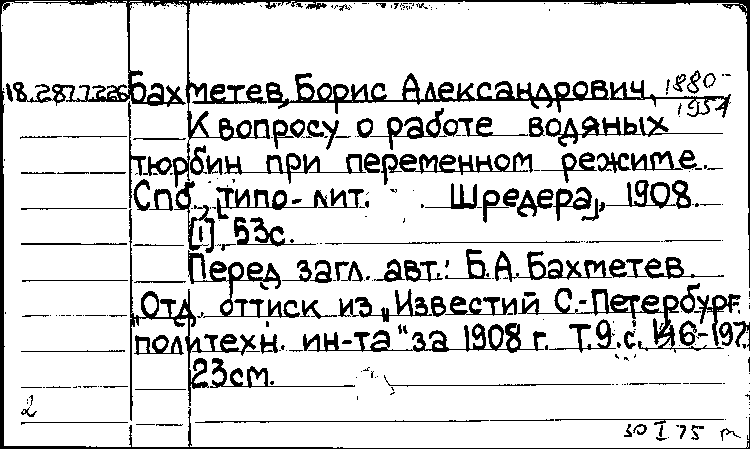 18.287.7.226 Бахметев, Борис Александрович, 1880-
1951
К вопросу о работе водяных
тюрбин при переменном режиме.
Спб., [типо-лит. Шредера], 1908.
[1], 53с.
Перед загл. авт.: Б.А. Бахметев.
"Отд. оттиск из „Известий С.-Петербург.
политехн. ин-та" за 1908 г. Т.9.с. 146-197.
23см.
2
30 I 75